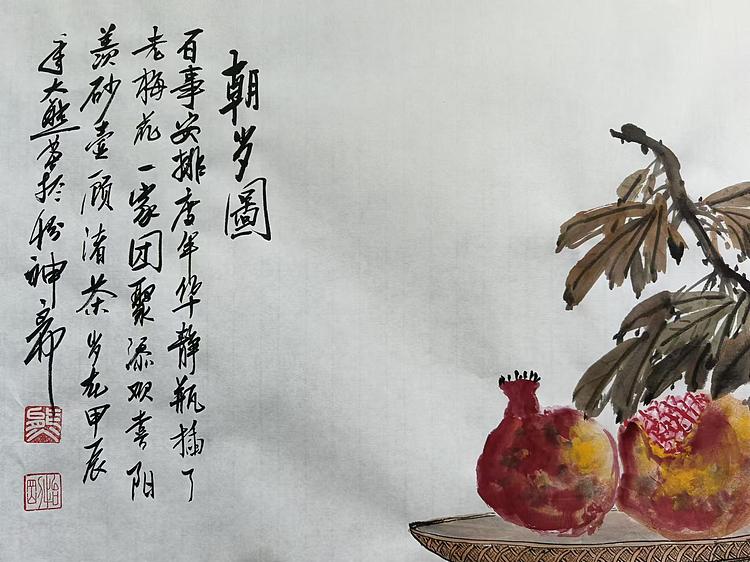 朝岁圖
百事安排度年华静瓶插了
老梅花一家团聚添欢喜阳
羡砂壶顾渚茶岁在甲辰
年大熊於神